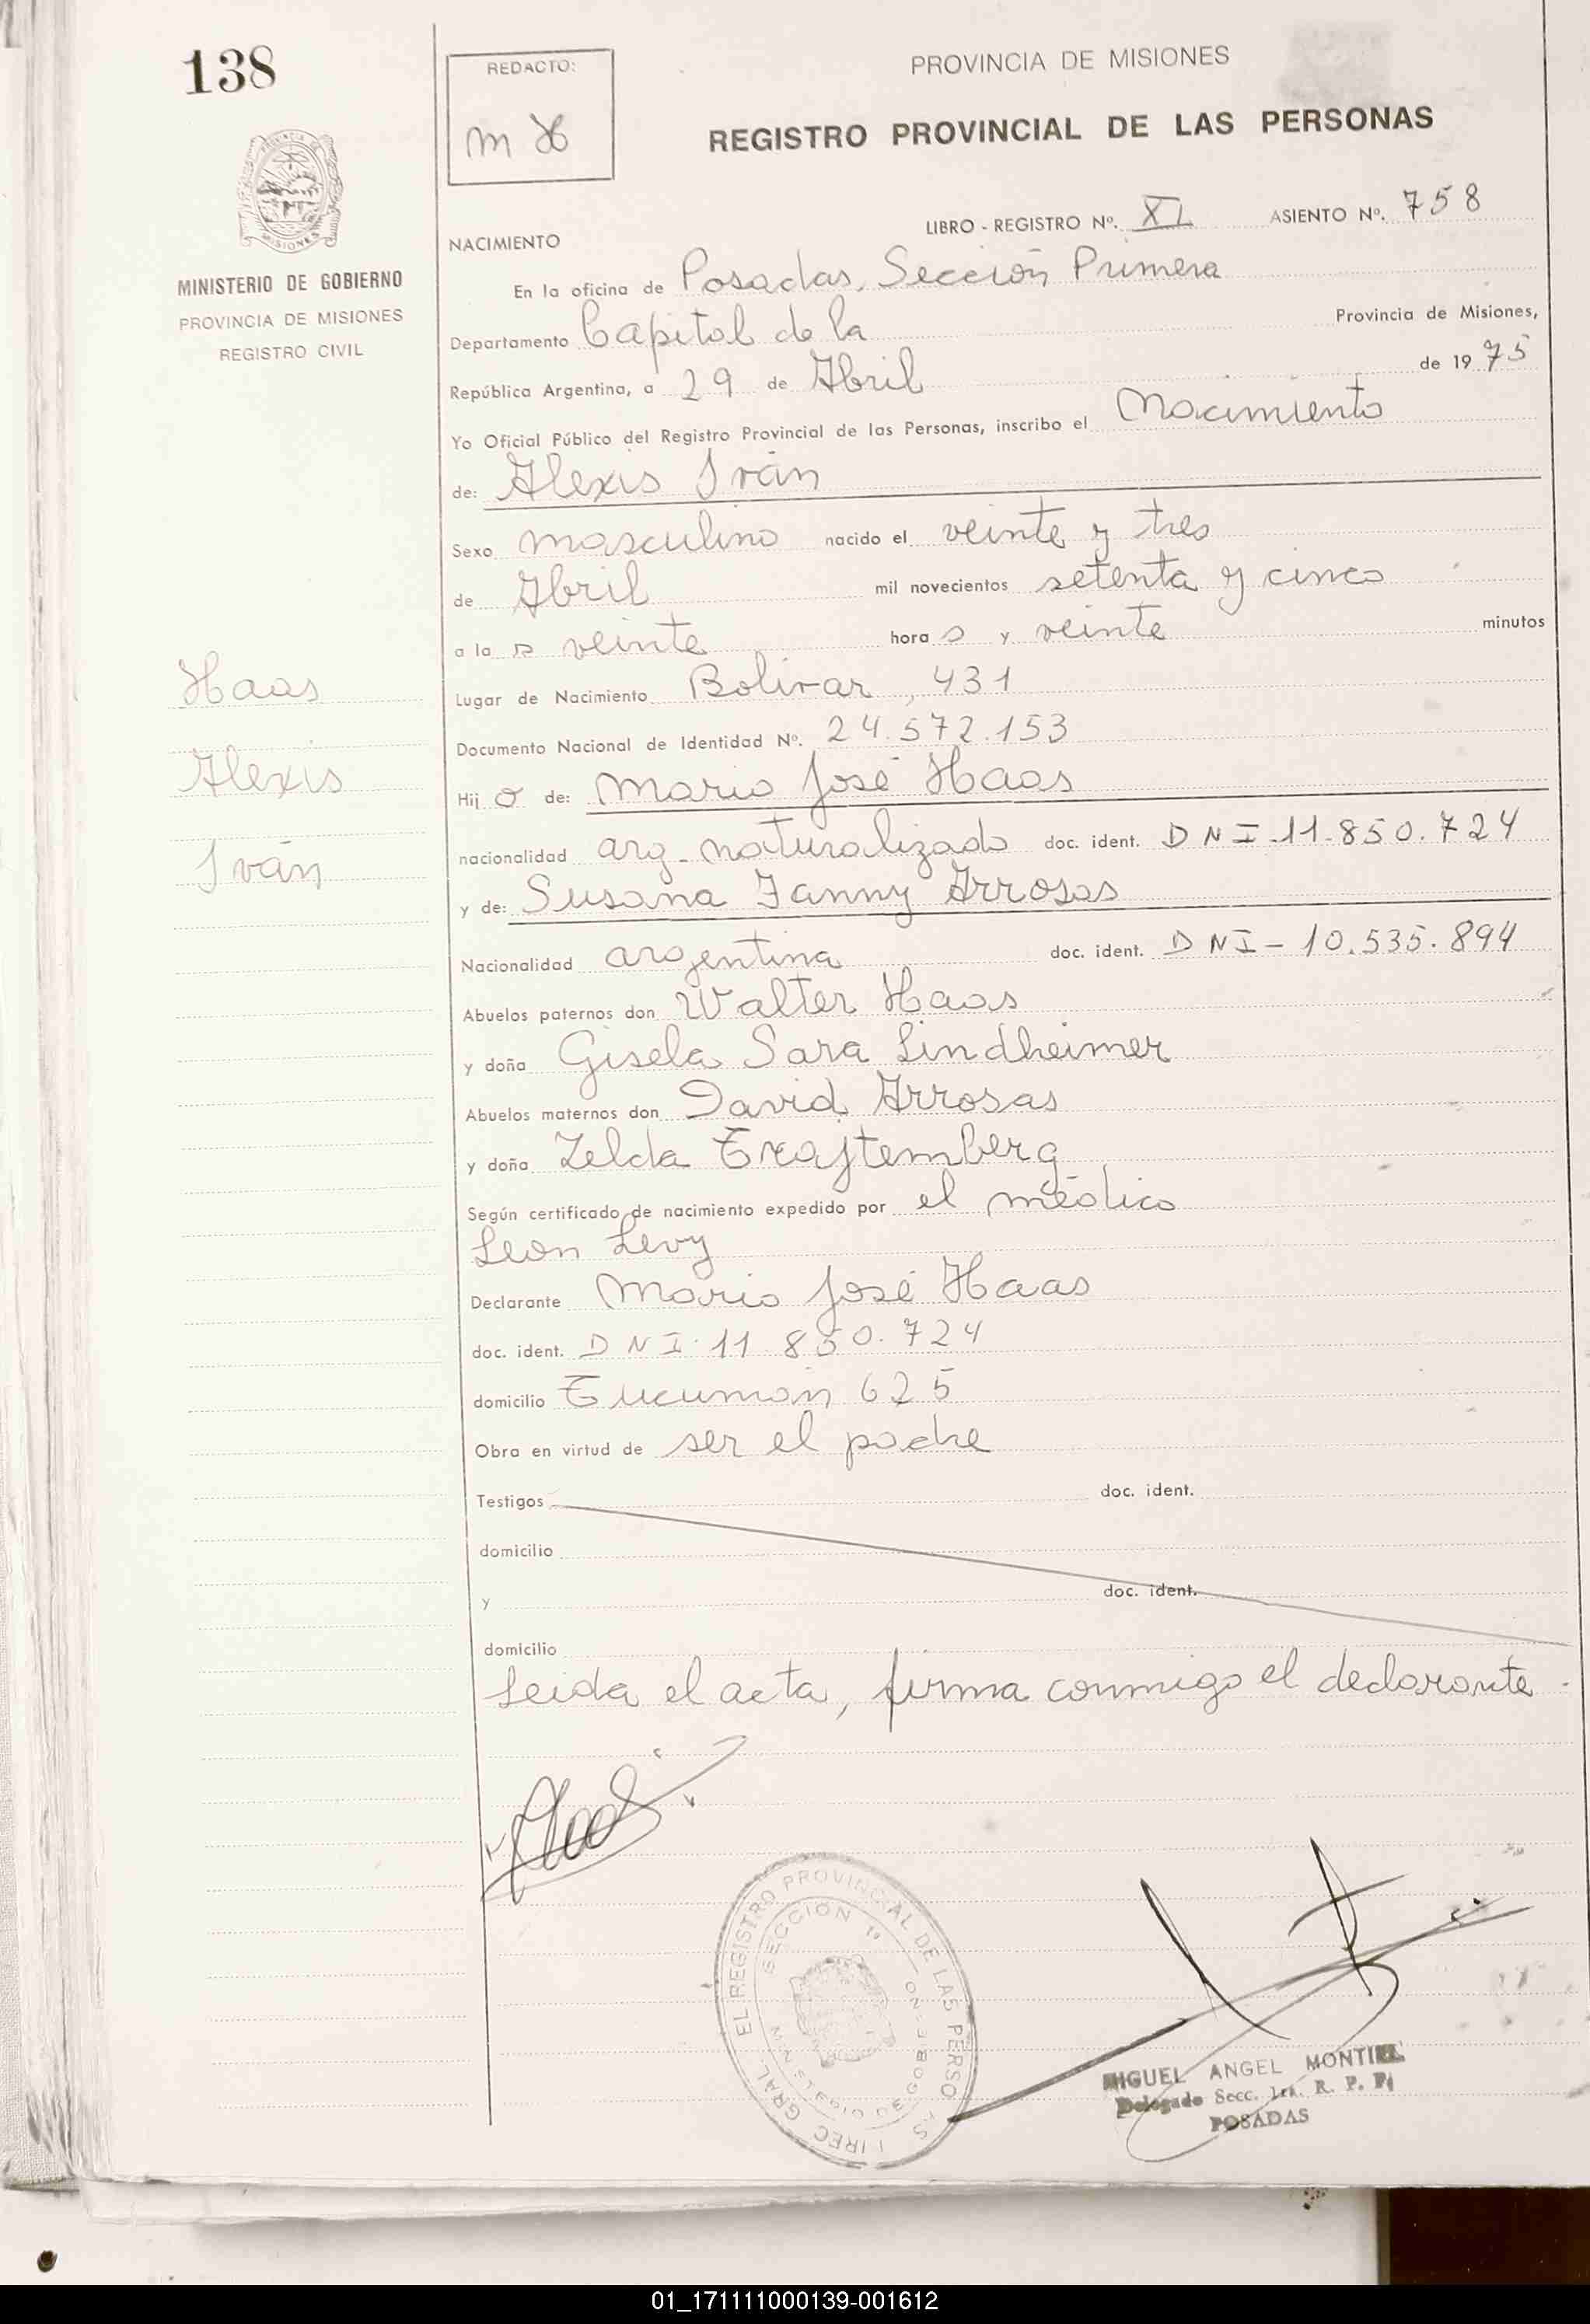 138
REDACTO:
m H
PROVINCIA DE MISIONES
REGISTRO PROVINCIAL DE LAS PERSONAS
LIBRO - REGISTRO Nº. XL ASIENTO Nº. 758
MINISTERIO DE GOBIERNO
PROVINCIA DE MISIONES
REGISTRO CIVIL
NACIMIENTO
En la oficina de Posadas, Sección Primera
Departamento Capital de la Provincia de Misiones,
República Argentina, a 29 de Abril de 1975
Yo Oficial Público del Registro Provincial de las Personas, inscribo el Nacimiento
de: Alexis Iván
Sexo masculino nacido el veinte y tres
de Abril mil novecientos setenta y cinco
a la s veinte hora s y veinte minutos
Haas
Alexis
Iván
Lugar de Nacimiento Bolivar, 431
Documento Nacional de Identidad Nº. 24.572.153
Hij o de: Mario José Haas
nacionalidad arg. naturalizado doc. ident. DNI-11-850.724
y de: Susana Fanny Arrosas
Nacionalidad argentina doc. ident. DNI-10.535.894
Abuelos paternos don Walter Haas
y doña Gisela Sara Lindheimer
Abuelos maternos don David Arrosas
y doña Zelda
Según certificado de nacimiento expedido por el médico
Leon Levy
Declarante Mario José Haas
doc. ident. DNI-11-850.724
domicilio Tucumán 625
Obra en virtud de ser el padre
Testigos doc. ident.
domicilio
y doc. ident.
domicilio
Leida el acta, firma conmigo el declarante.
MIGUEL ANGEL MONTIEL
Delegado Secc. 1ra. R. P. P.
POSADAS
01_171111000139-001612